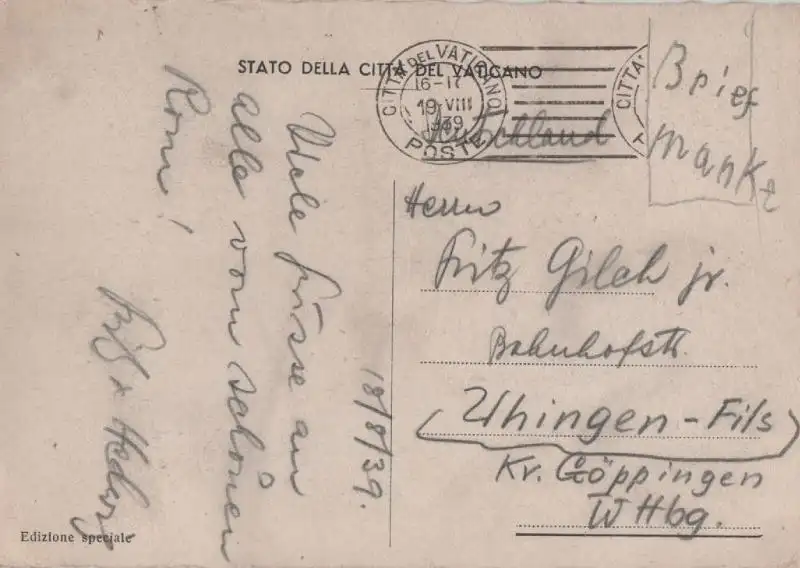 STATO DELLA CITTÀ DEL VATICANO
CITTÀ DEL VATICANO
16-17
19 VIII
1939
POSTE
CITTA
Brief
marke
Deutschland
18/8/39.
Viele Grüsse an
alle vom schönen
Rom!
+ Hedwig
Herrn
Fritz Gilch jr.
Bahnhofstr.
Uhingen-Fils
Kr. Göppingen
Wttbg.
Edizione speciale